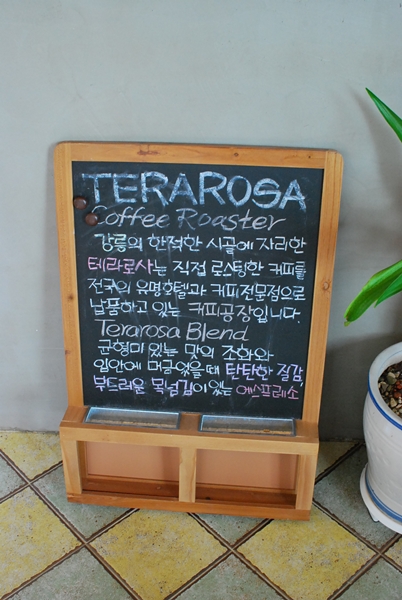 TERAROSA
Coffee Roaster
강릉의 한적한 시골에 자리한
테라로사는 직접 로스팅한 커피를
전국의 유명호텔과 커피전문점으로
납품하고 있는 커피공장입니다.
Terarosa Blend
균형미 있는 맛의 조화와
입안에 머금었을때 탄탄한 질감,
부드러운 목넘김이 있는 에스프레소